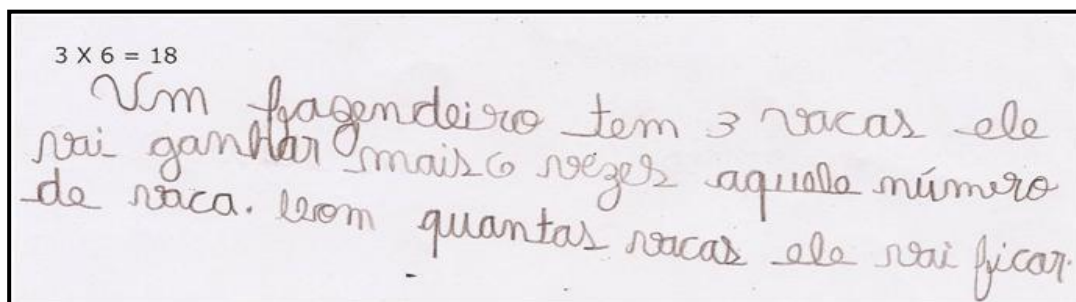 3 X 6 = 18
Um fazendeiro tem 3 vacas ele
vai ganhar mais 6 vezes aquele número
de vaca. Com quantas vacas ele vai ficar.